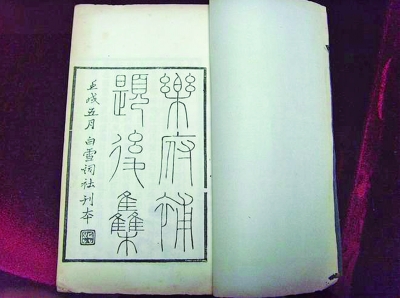 樂府補
題後集
壬戌五月 白雪詞社刊本